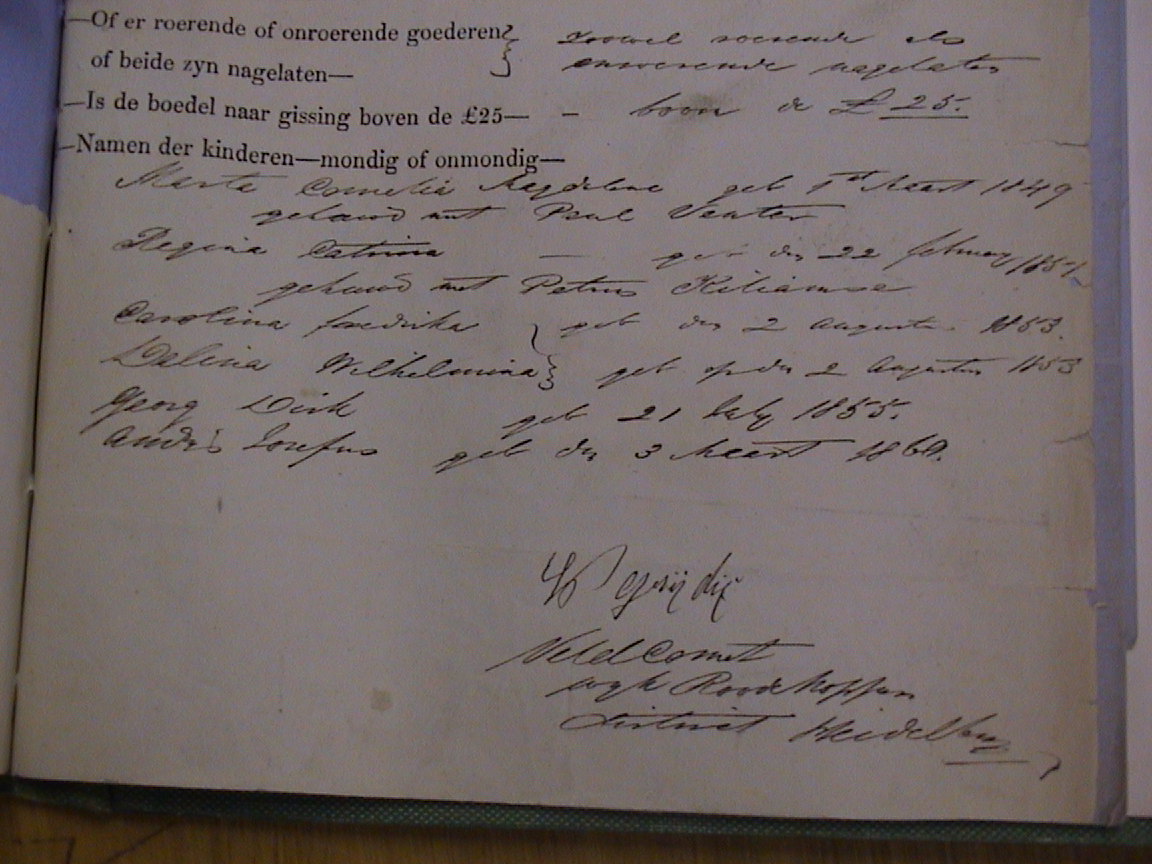 —Of er roerende of onroerende goederen} Zoowel roerende als
of beide zyn nagelaten— onroerende nagelaten
—Is de boedel naar gissing boven de £25— - boven de £25.
—Namen der kinderen—mondig of onmondig—
Marta Cornelia Magdelena geb 1st Maart 1849
gehuwd met Paul Venter
Regina Catrina — geb den 22 february 1851
gehuwd met Petrus
Carolina fredrika } geb den 2 Augustus 1853.
Dalina Wilhelmina } geb op den 2 Augustus 1853
Georg Dirk geb 21 July 1855.
Andris Josefus geb den 3 Maart 1860.
Veld Cornet
wyk Roodekoppen
district Heidelberg